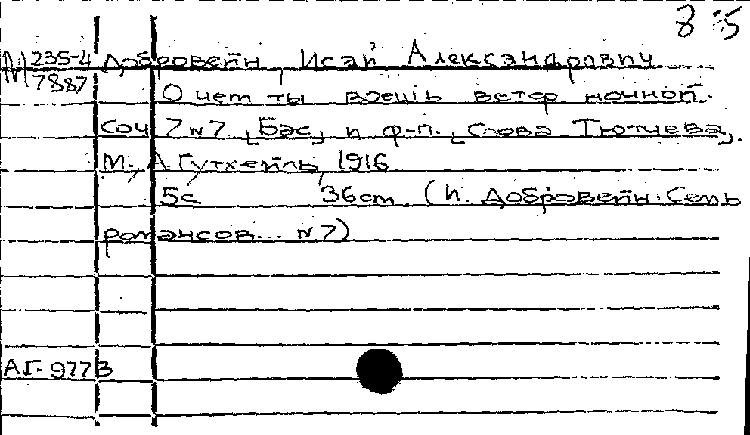 8 5
М 235-4 Добровейн, Исай Александрович
7887
О чем ты воешь ветер ночной.
Соч 7 N7 [Бас] и ф-п. [Слова Тютчева].
М., А Гутхейль, 1916
5с 36cm. (И. Добровейн. Семь
романсов... N7)
АГ-977В